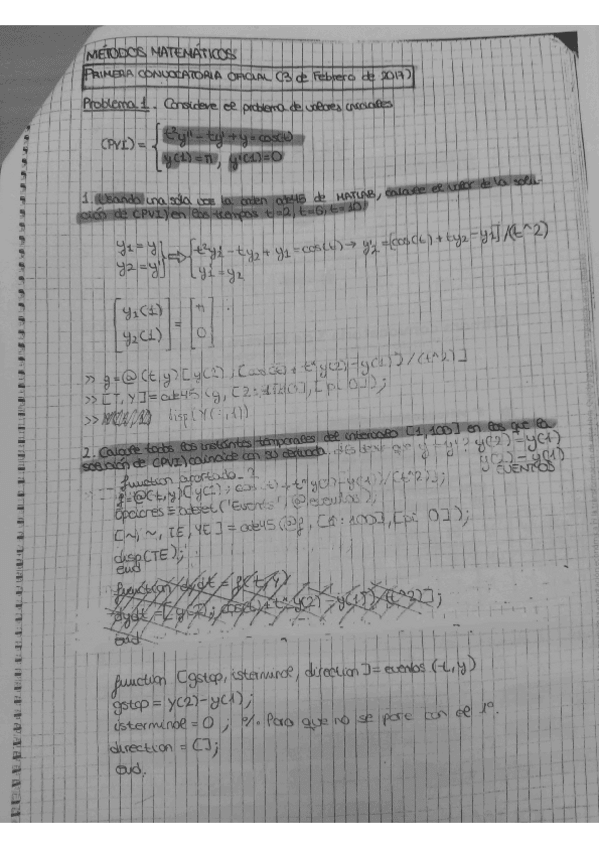 MÉTODOS MATEMÁTICOS
PRIMERA CONVOCATORIA OFICIAL (3 de Febrero de 2017)
Problema 1. Considere el problema de valores iniciales
(PVI) = { t²y'' - ty' + y = cos(t)
y(1) = π, y'(1) = 0
1. Usando una sola vez la orden ode45 de MATLAB, calcule el valor de la solu-
ción de (PVI) en los tiempos t=2, t=6, t=10.
y1 = y
y2 = y' } ⇒ [ t²y2' - ty2 + y1 = cos(t) → y2' = [cos(t) + ty2 - y1] /(t^2)
y1' = y2
[ y1(1)
y2(1) ] = [ π
0 ]
>> g=@(t,y)[y(2), [cos(t) + t*y(2) - y(1)]/(t^2)]
>> [T,Y]=ode45(g,
[pi 0]);
>> disp(Y(:,1))
2. Calcule todos los instantes temporales del intervalo [1,100] en los que la
solución de (PVI) coincide con su derivada.
y(2) = y(1)
y(2) - y(1)
EVENTOS
function apartado_2
opciones = odeset('Events', @eventos);
[~, ~, TE, YE] = ode45(@g, [1:100], [pi 0]);
disp(TE);
end
function dydt = g(t,y)
dydt = [y(2); cos(t) + t*y(2) - y(1)]/(t^2)];
end
function [gstop, isterminal, direction] = eventos (t,y)
gstop = y(2)-y(1);
isterminal = 0 ; % Para que no se pare con el 1º.
direction = [];
end.